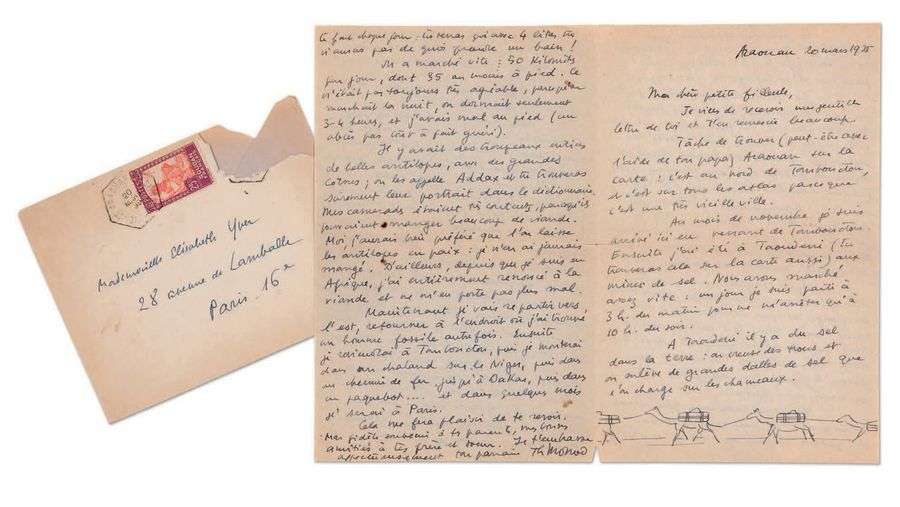 Mademoiselle Elisabeth Yver
28 avenue de Lamballe
Paris. 16e
Araouan 20 mars 1935
Ma chère petite filleule,
Je viens de recevoir une gentille
lettre de toi et t'en remercie beaucoup.
Tâche de trouver (peut-être avec
l'aide de ton papa) Araouan sur la
carte : c'est au nord de Tombouctou,
et c'est sur tous les atlas parce que
c'est une très vieille ville.
Au mois de novembre je suis
arrivé ici en venant de Tombouctou.
Ensuite j'ai été à Taoudeni (tu
trouveras cela sur la carte aussi) aux
mines de sel. Nous avons marché
assez vite : un jour je suis parti à
3 h. du matin pour ne m'arrêter qu'à
10 h. du soir.
A Taoudeni il y a du sel
dans la terre : on creuse des trous et
on enlève de grandes dalles de sel que
l'on charge sur les chameaux.
chaque jour. Tu verras qu'avec 4 litres tu
n'auras pas de quoi prendre un bain !
On a marché vite : 50 kilomèt.
par jour, dont 35 au moins à pied. Ce
n'était pas toujours très agréable, parce qu'on
marchait la nuit, on dormait seulement
3-4 heures, et j'avais mal au pied (un
abcès pas tout à fait guéri).
Il y avait des troupeaux entiers
de belles antilopes, avec des grandes
cornes ; on les appelle Addax et tu trouveras
surement leur portrait dans le dictionnaire.
Mes camarades étaient très contents, parce qu'ils
pouvaient manger beaucoup de viande.
Moi, j'aurais bien préféré que l'on laisse
les antilopes en paix : je n'en ai jamais
mangé. D'ailleurs, depuis que je suis en
Afrique, j'ai entièrement renoncé à la
viande et ne m'en porte pas plus mal.
Maintenant je vais repartir vers
l'est, retourner à l'endroit où j'ai trouvé
un homme fossile autrefois. Ensuite
je reviendrai à Tombouctou, puis je monterai
dans un chaland sur le Niger, puis dans
un chemin de fer jusqu'à Dakar, puis dans
un paquebot.... et dans quelques mois
je serai à Paris.
Cela me fera plaisir de te revoir.
Mes fidèles souvenirs à tes parents, mes bonnes
amitiés à tes frère et soeur. Je t'embrasse
affectueusement ton parrain Th Monod